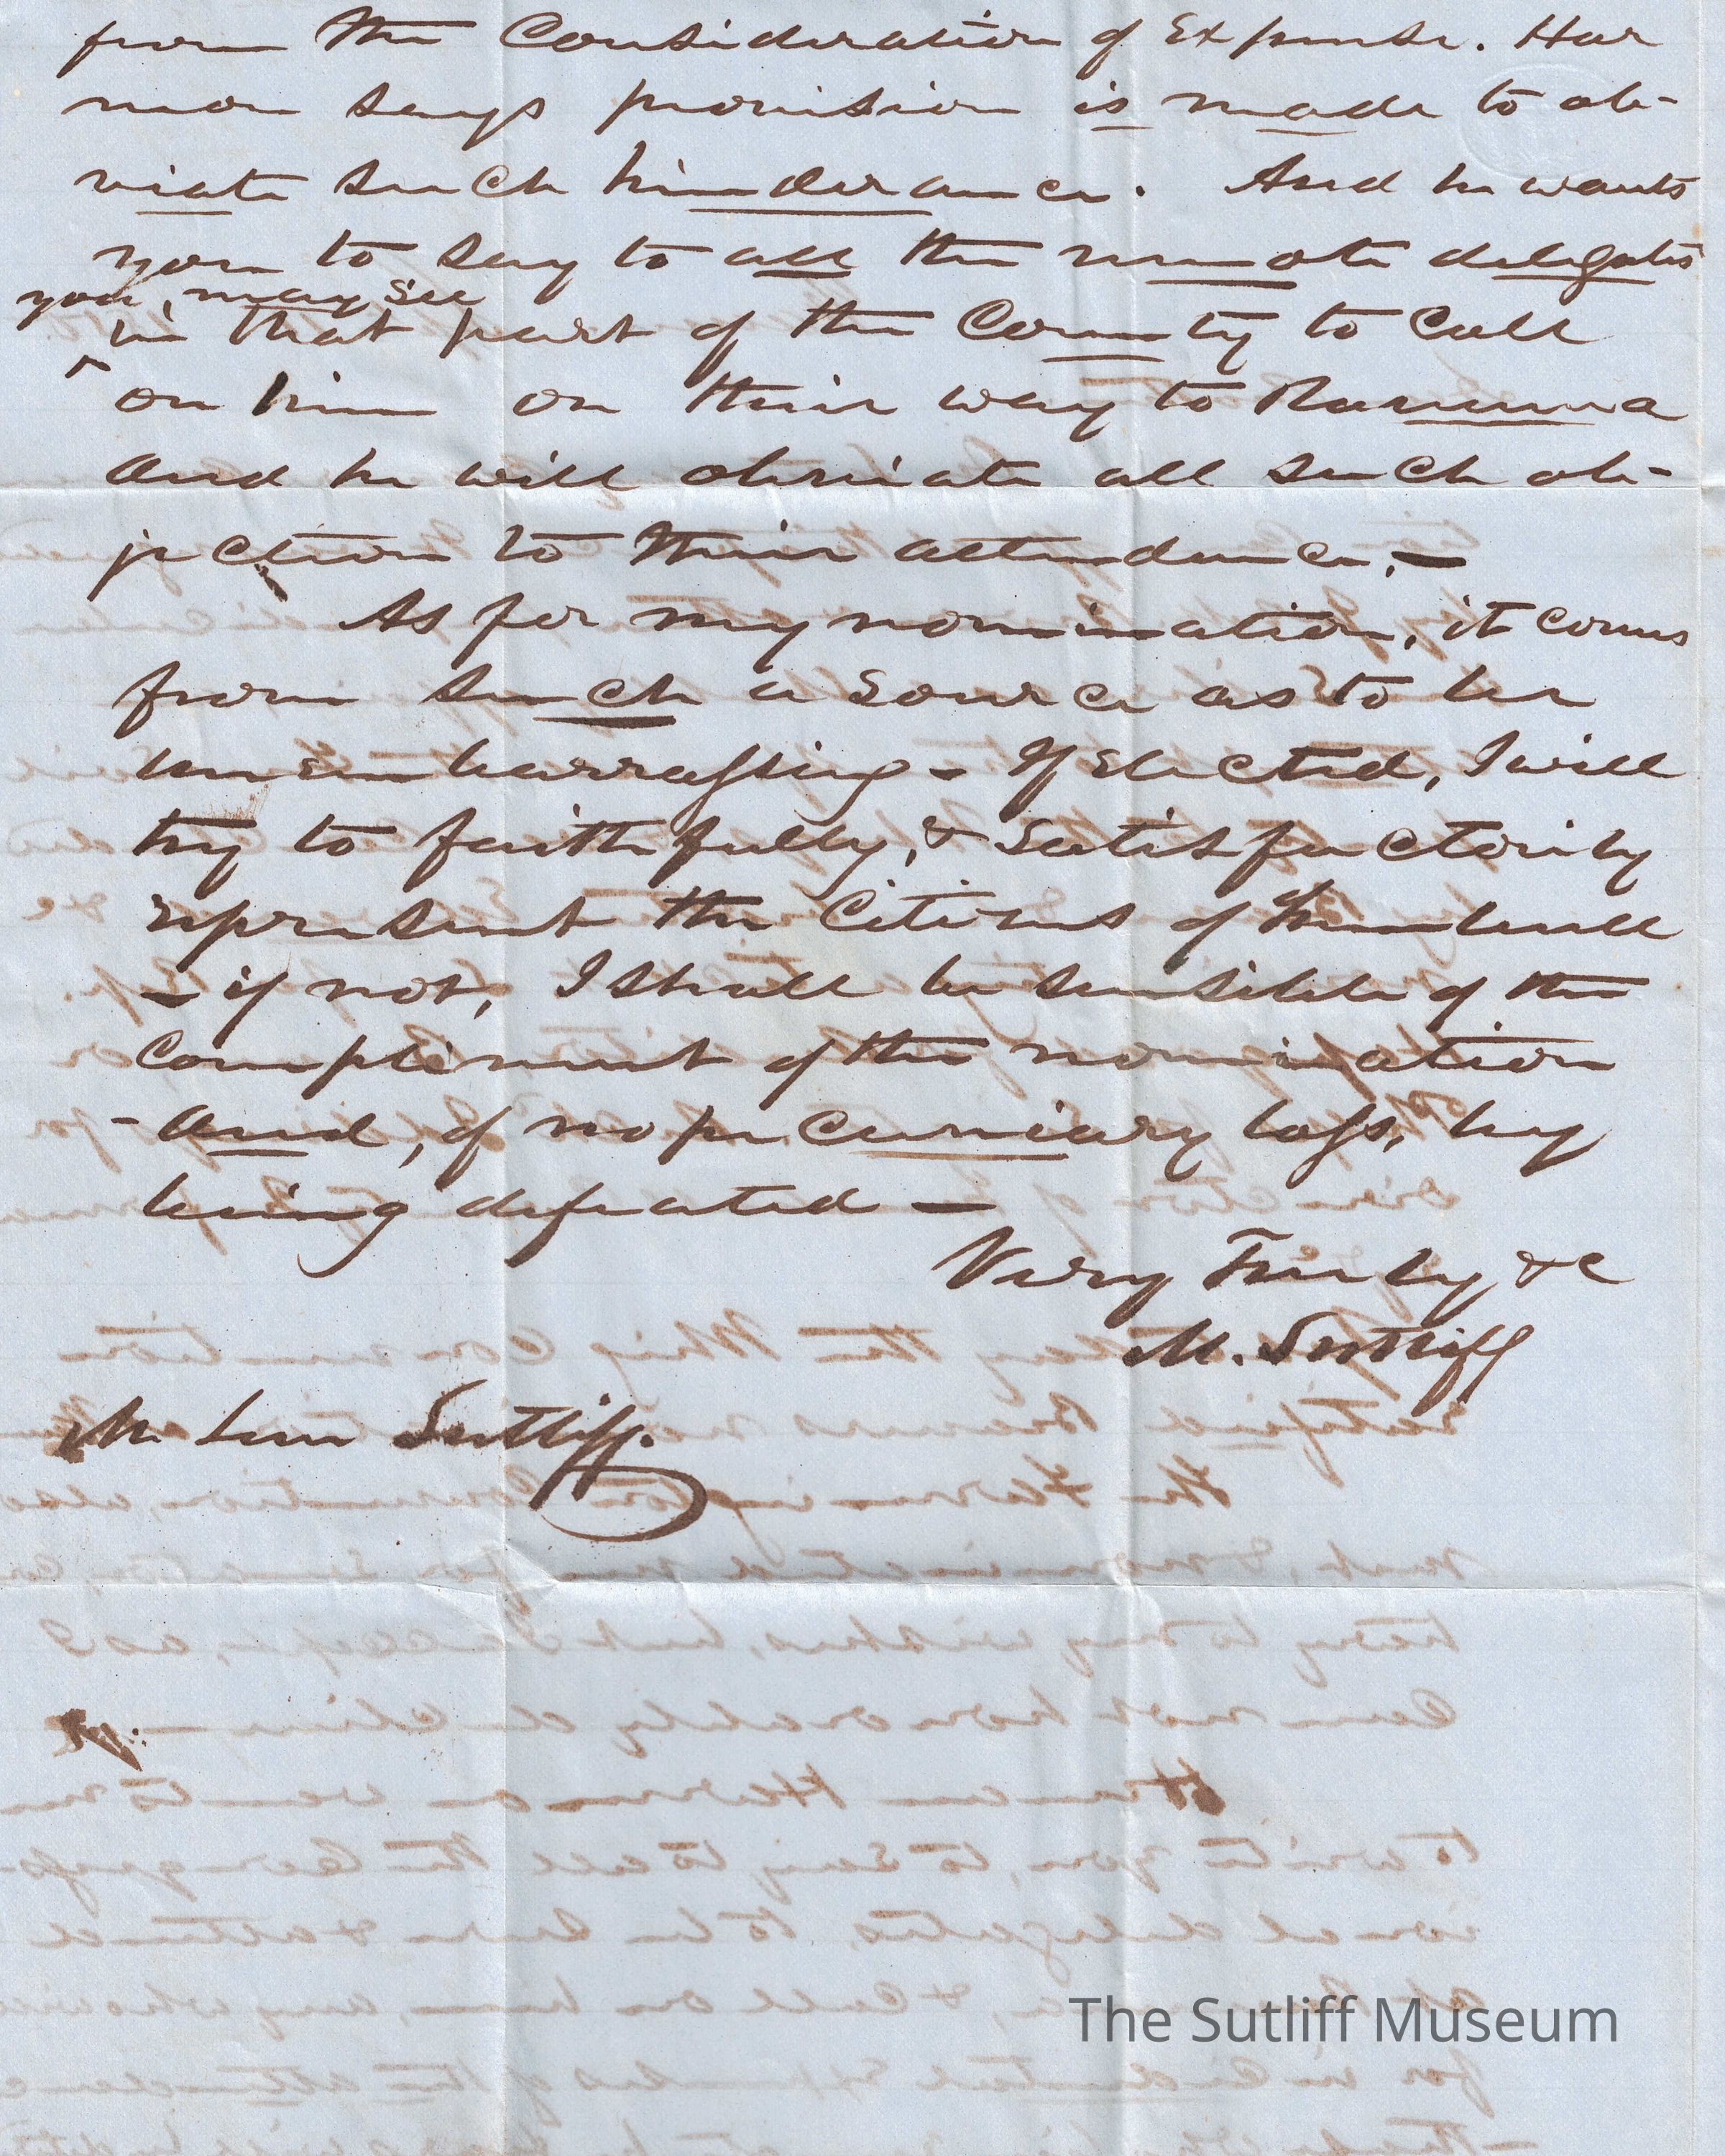 from the Consideration of Expense. Har
mon says provision is made to ob-
viate such hinderance. And he wants
you to say to all the remote delegates
you may see
in that part of the County to Call
on him on their way to Ravenna
and he will obviate all such ob-
jection to their attendance. —
As for my nomination, it comes
from such a source as to be
unembarrassing - If Elected, I will
try to faithfully, & Satisfactorily
represent the Citizens of Trumbull
- if not, I shall be sensible of the
Compliment of the nomination
- And, of no pecuniary loss, by
being defeated —
Very Truly &c
M. Sutliff
M. Sutliff.
The Sutliff Museum